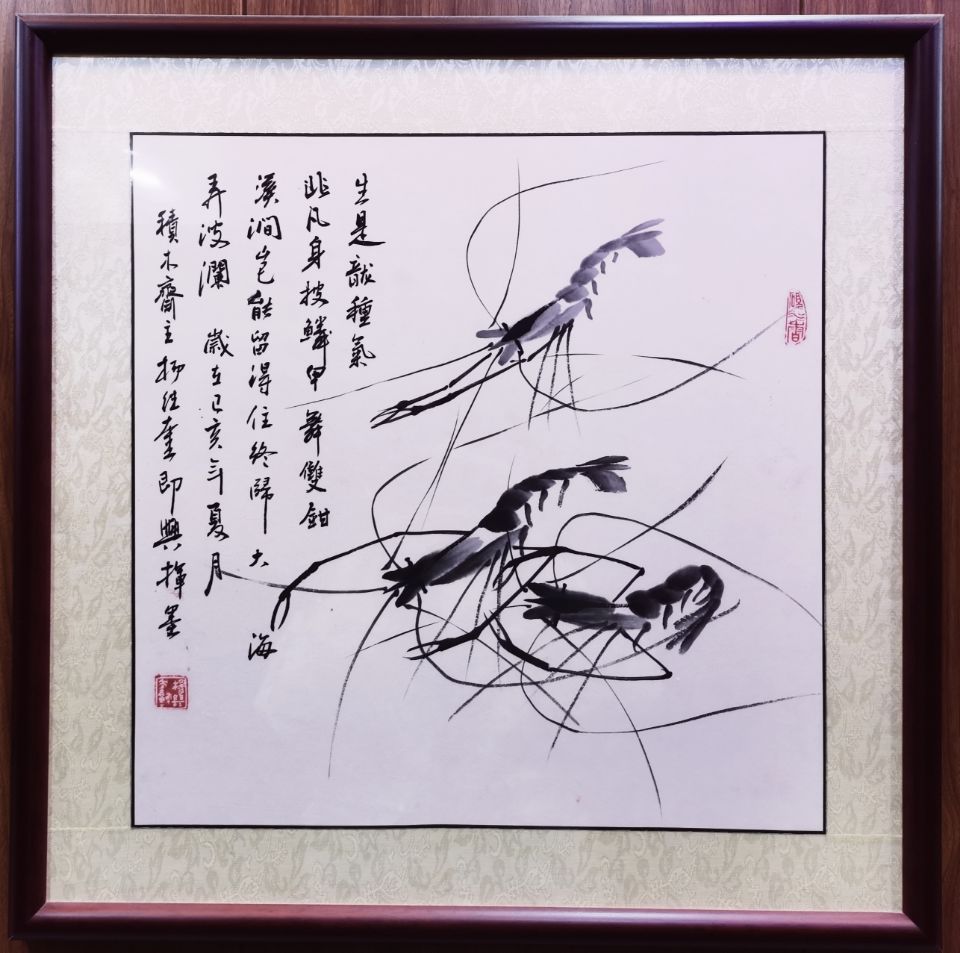 生是龍種氣
非凡身披鱗甲 舞雙鉗
溪澗豈能留得住終歸大海
弄波瀾 歲在己亥年夏月
積木齋主楊奎即興揮墨